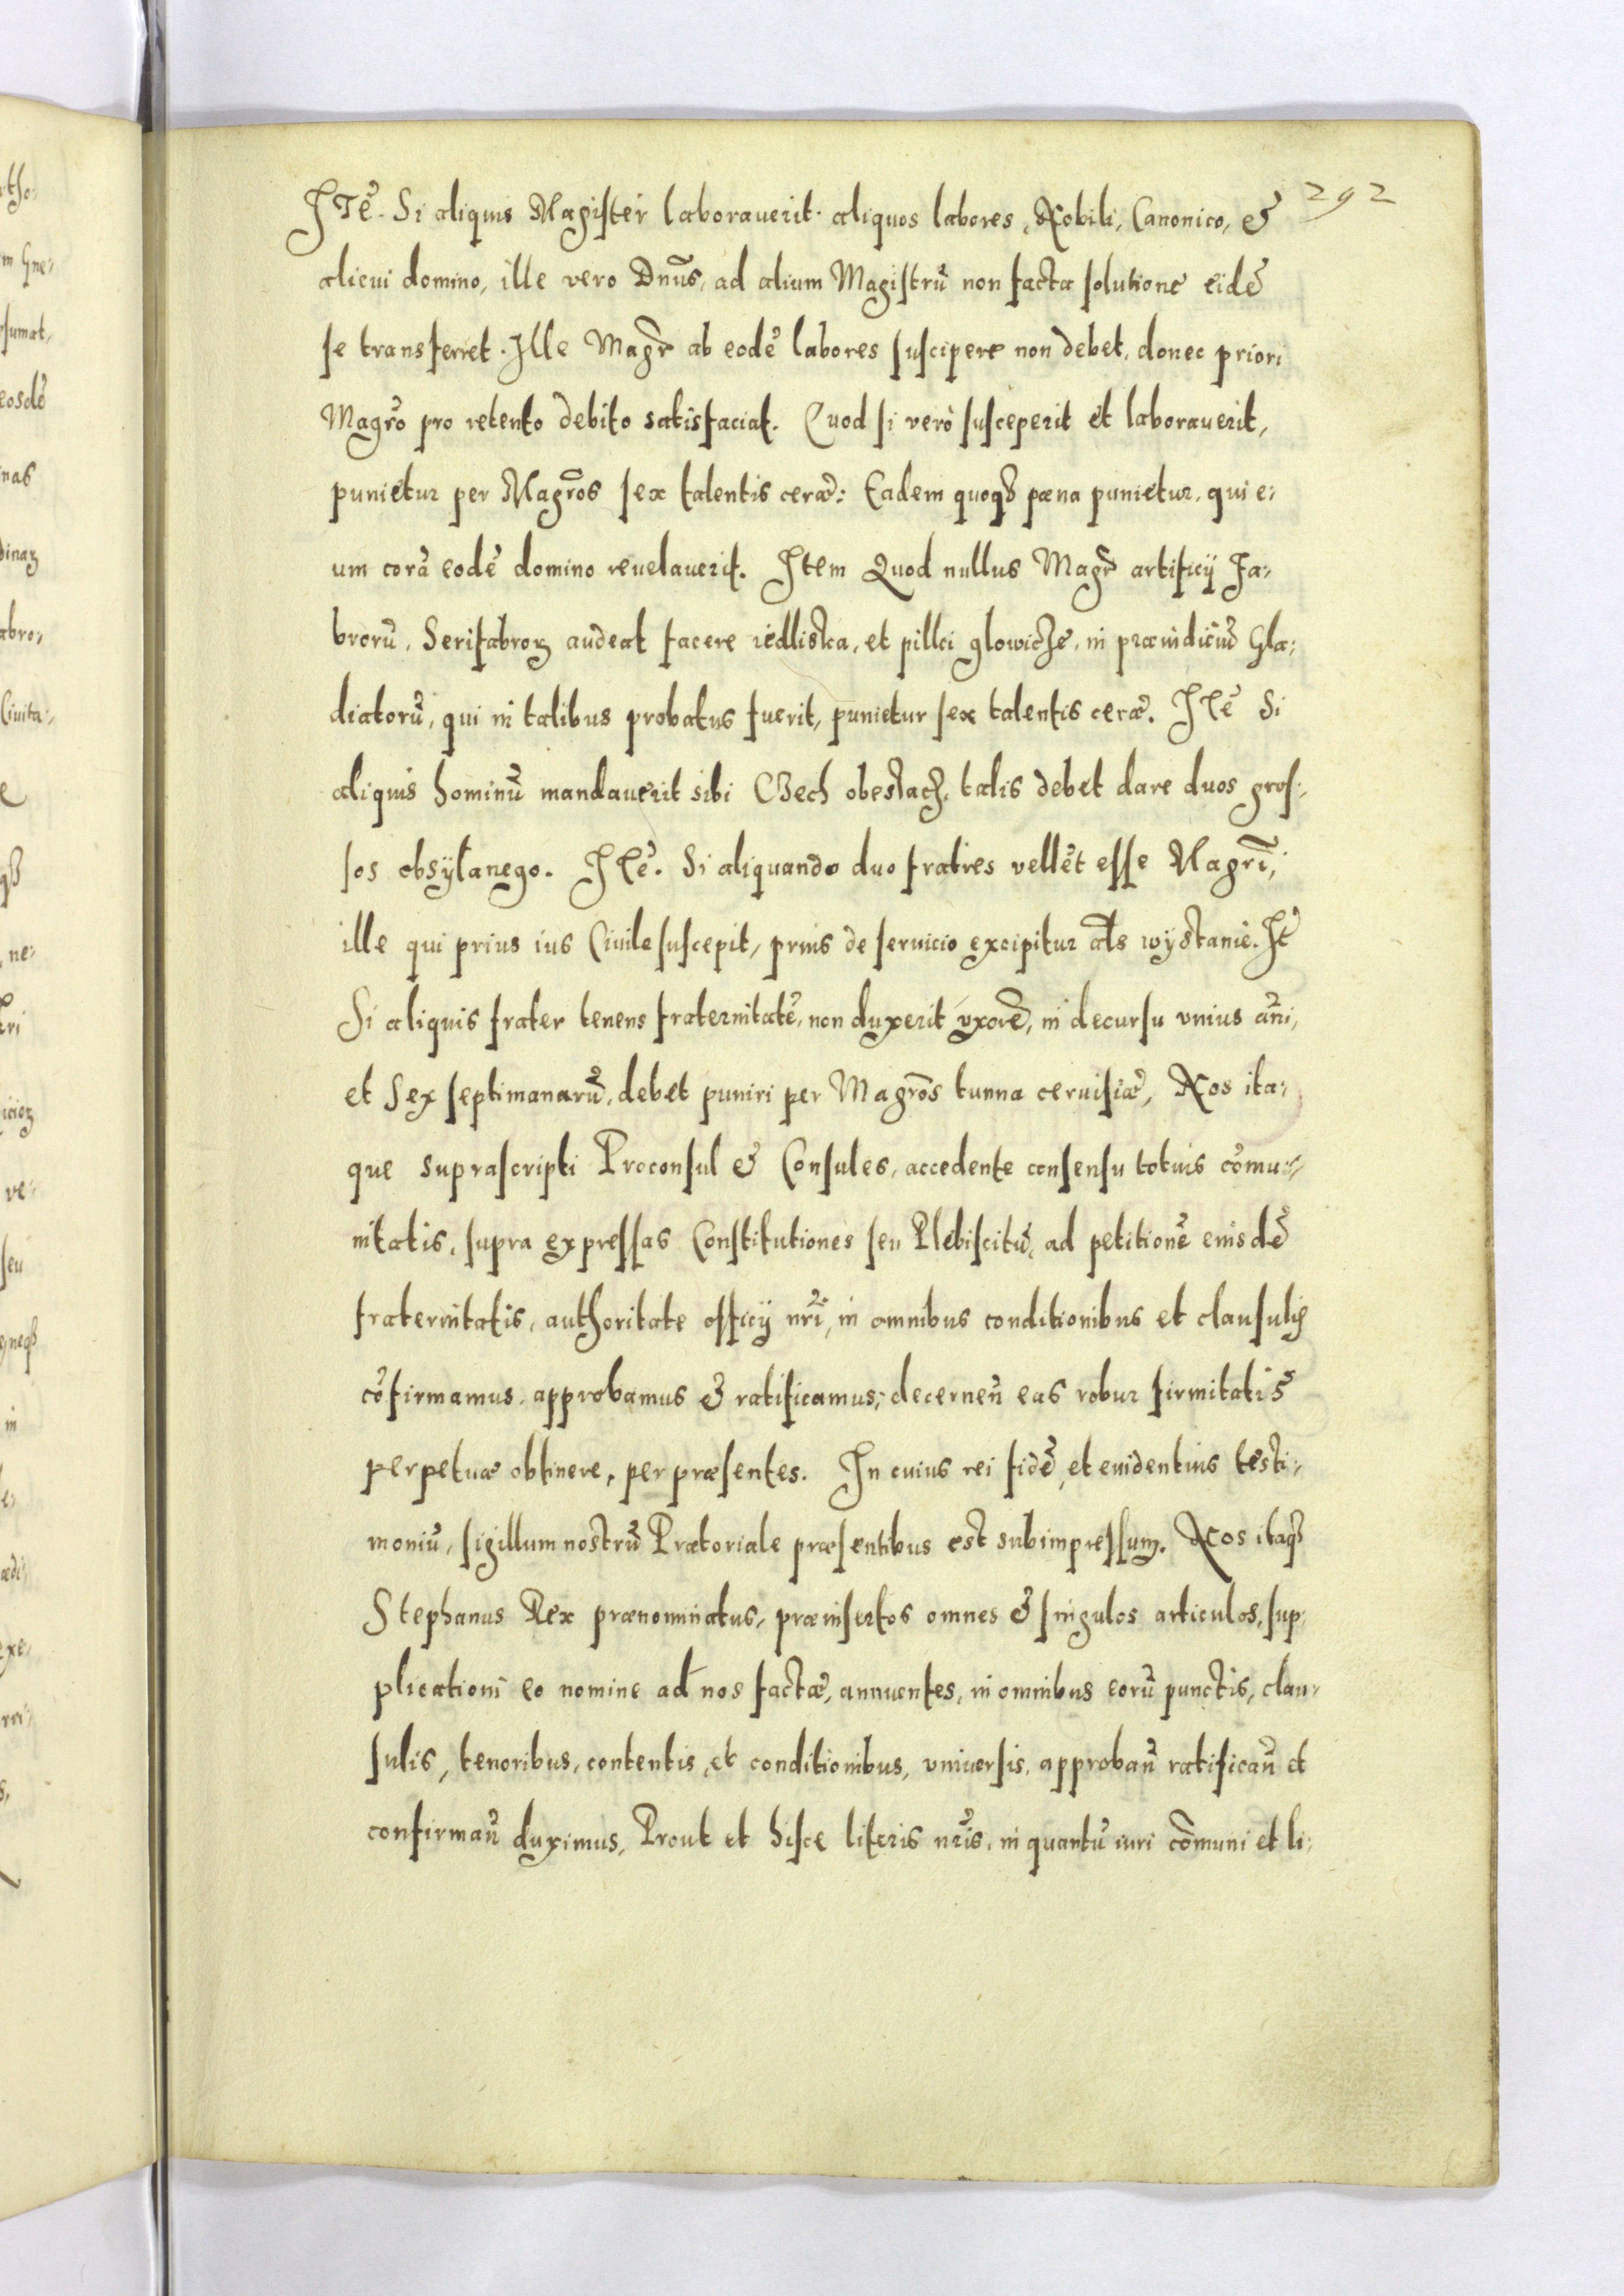 292
Itẽ. Si aliquis Magister laborauerit aliquos labores, Nobili, Canonico, &
alicui domino, ille vero Dnũs, ad alium Magistrũ non facta solutione eidẽ
se transferret. Ille Magr̃ ab eodẽ labores suscipere non debet, donec priori
Magrõ pro retento debito satisfaciat. Quod si verò susceperit et laborauerit,
punietur per Magrõs sex talentis ceræ: Eadem quoqȝ pæna punietur, qui e-
um corã eodẽ domino reuelauerit. Item Quod nullus Magr̃ artificij Fa-
brorũ, Serifabroꝝ audeat facere iedliska, et pillci glowicze, in præiudiciũ Gla-
diatorũ, qui in talibus probatus fuerit, punietur sex talentis ceræ. Itẽ Si
aliquis hominũ mandauerit sibi Czech obeslacz, talis debet dare duos gros-
sos obsyłanego. Itẽ. Si aliquando duo fratres vellẽt esse Magrĩ,
ille qui prius ius Ciuile suscepit, prius de seruicio excipitur als wystanie. It̃
Si aliquis frater tenens fraternitatẽ, non duxerit vxorẽ, in decursu vnius añi,
et Sex septimanarũ, debet puniri per Magrõs tunna ceruisiæ, Nos ita-
que suprascripti Proconsul & Consules, accedente consensu totius cõmu-
nitatis, supra expressas Constitutiones seu Plebiscitũ, ad petitionẽ eiusdẽ
fraternitatis, authoritate officij nrĩ, in omnibus conditionibus et clausulis
cõfirmamus, approbamus & ratificamus, decerneñ eas robur firmitatis
perpetuæ obtinere, per præsentes. In cuius rei fidẽ, et euidentius testi-
moniũ, sigillum nostrũ Prætoriale præsentibus est subimpressum. Nos itaqȝ
Stephanus Rex prænominatus, præinsertos omnes & singulos articulos, sup-
plicationi eo nomine ad nos factæ, annuentes, in omnibus eorũ punctis, clau-
sulis, tenoribus, contentis, et conditionibus, vniuersis, approbañ ratificañ et
confirmañ duximus, Prout et hisce literis nrĩs, in quantũ iuri cõmuni et li-